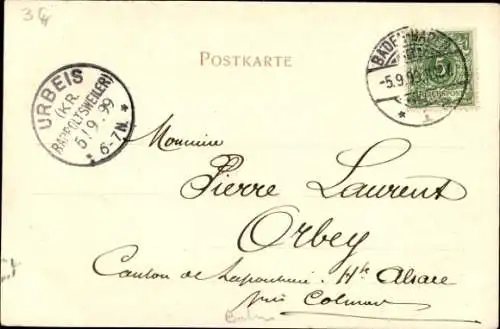 3
POSTKARTE
BADEN-BADEN
-5.9.99
5
1
URBEIS
(KR.
RAPPOLTSWEILER)
5/9.99
* 6-7N. *
Monsieur
Pierre Laurent
Orbey
Canton de Lapoutroie. Hte Alsace
près Colmar